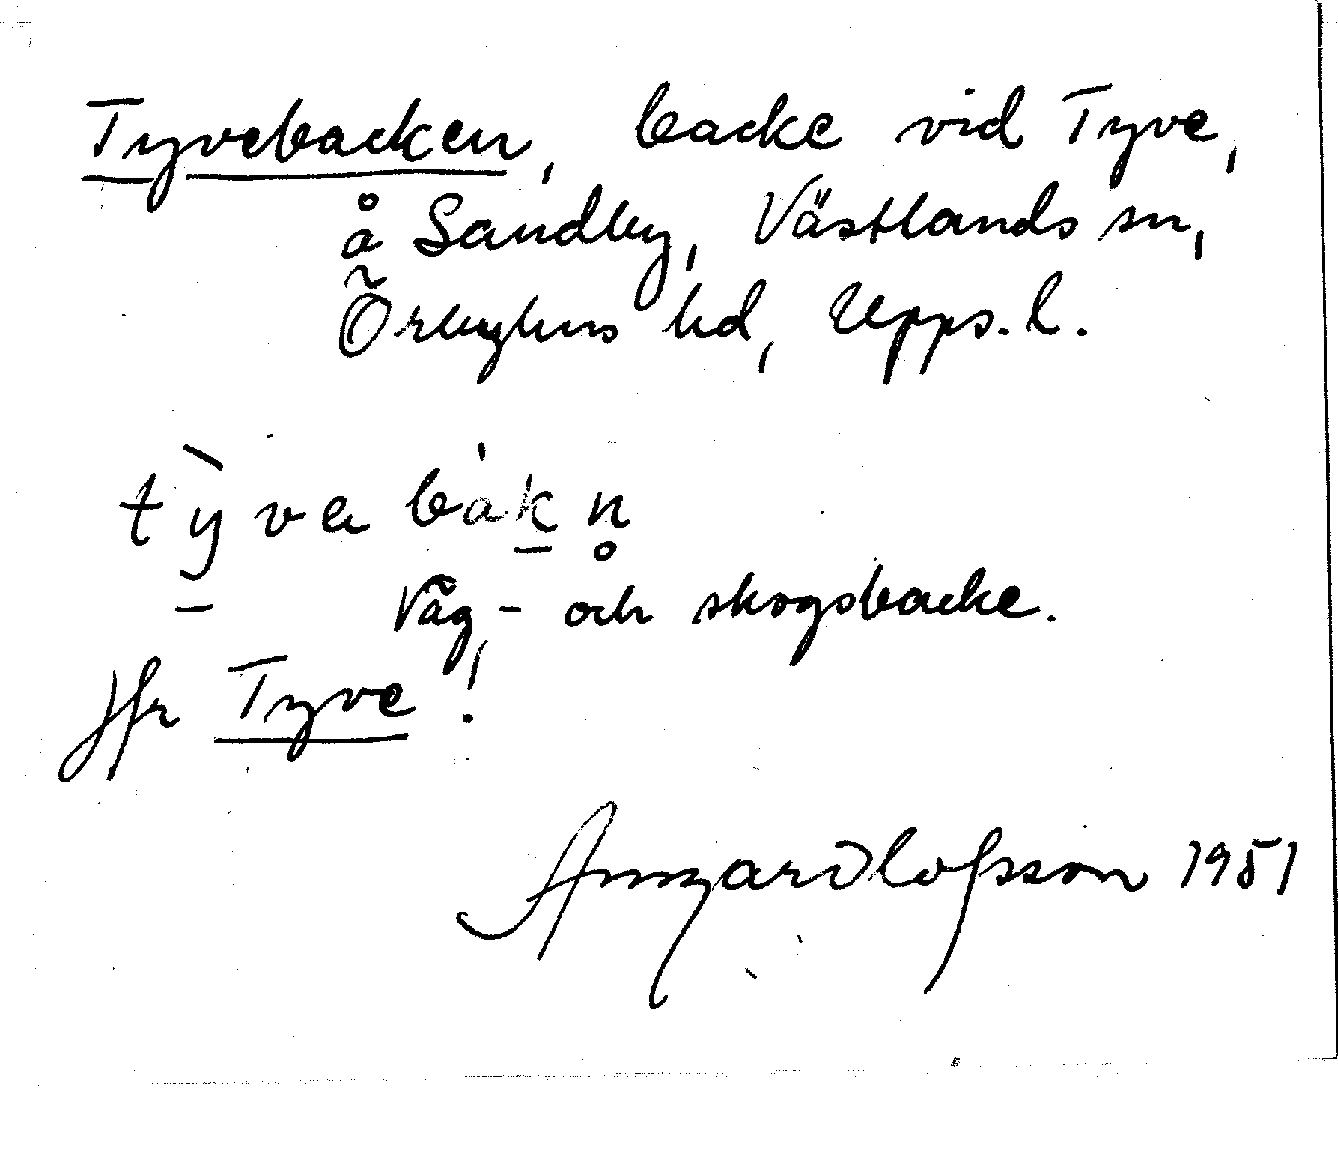 Tyvebacken, backe vid Tyve,
å Sandby, Västlands sn,
Örbyhus hd, Upps. l.
tỳvabàkn̥
Väg- och skogsbacke.
Jfr Tyve!
Ansgar Olofsson 1951